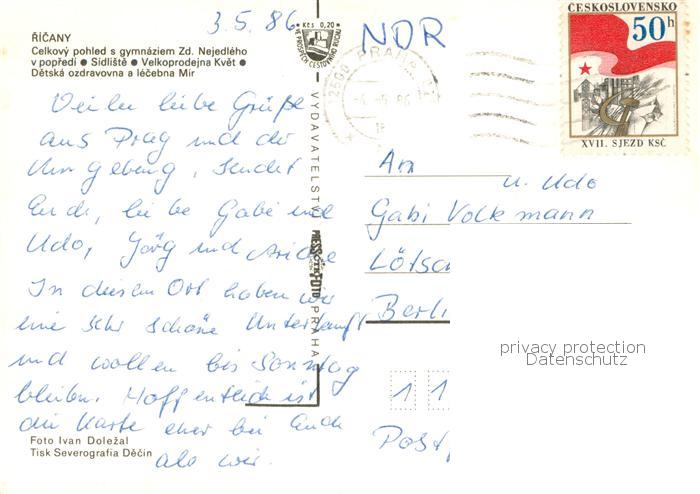 3.5.86
Kčs 0,20
VE PROSPĚCH CESTOVNÍHO RUCHU
NDR
ČESKOSLOVENSKO
50h
XVII. SJEZD KSČ
PRAHA
ŘÍČANY
Celkový pohled s gymnáziem Zd. Nejedlého
v popředí ● Sídliště ● Velkoprodejna Květ ●
Dětská ozdravovna a léčebna Mír
Viele liebe Grüße
aus Prag und der
Umgebung, sendet
Euch, liebe Gabi und
Udo, Jörg und
In diesem Ort haben wir
eine sehr schöne Unterkunft
und wollen bis Sonntag
bleiben. Hoffentlich ist
die Karte eher bei Euch
als wir.
Foto Ivan Doležal
Tisk Severografia Děčín
VYDAVATELSTVÍ PRESSFOTO PRAHA
An
u. Udo
Gabi Volkmann
Lötsc
Berli
11
Post
privacy protection
Datenschutz